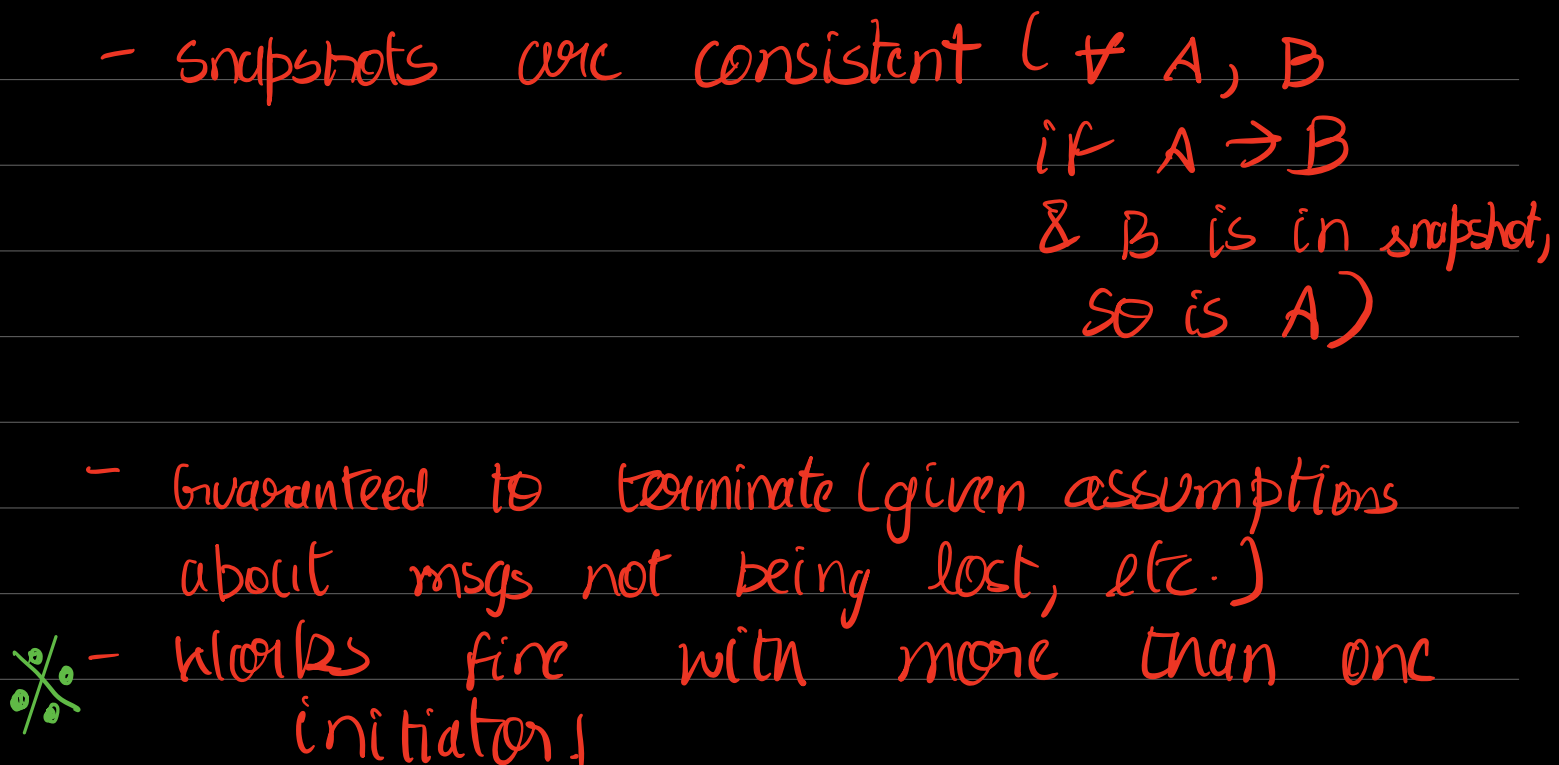 - snapshots are consistent ( ∀ A, B
if A → B
& B is in snapshot,
so is A)
- Guaranteed to terminate (given assumptions
about msgs not being lost, etc.)
- Works fine with more than one
initiator!